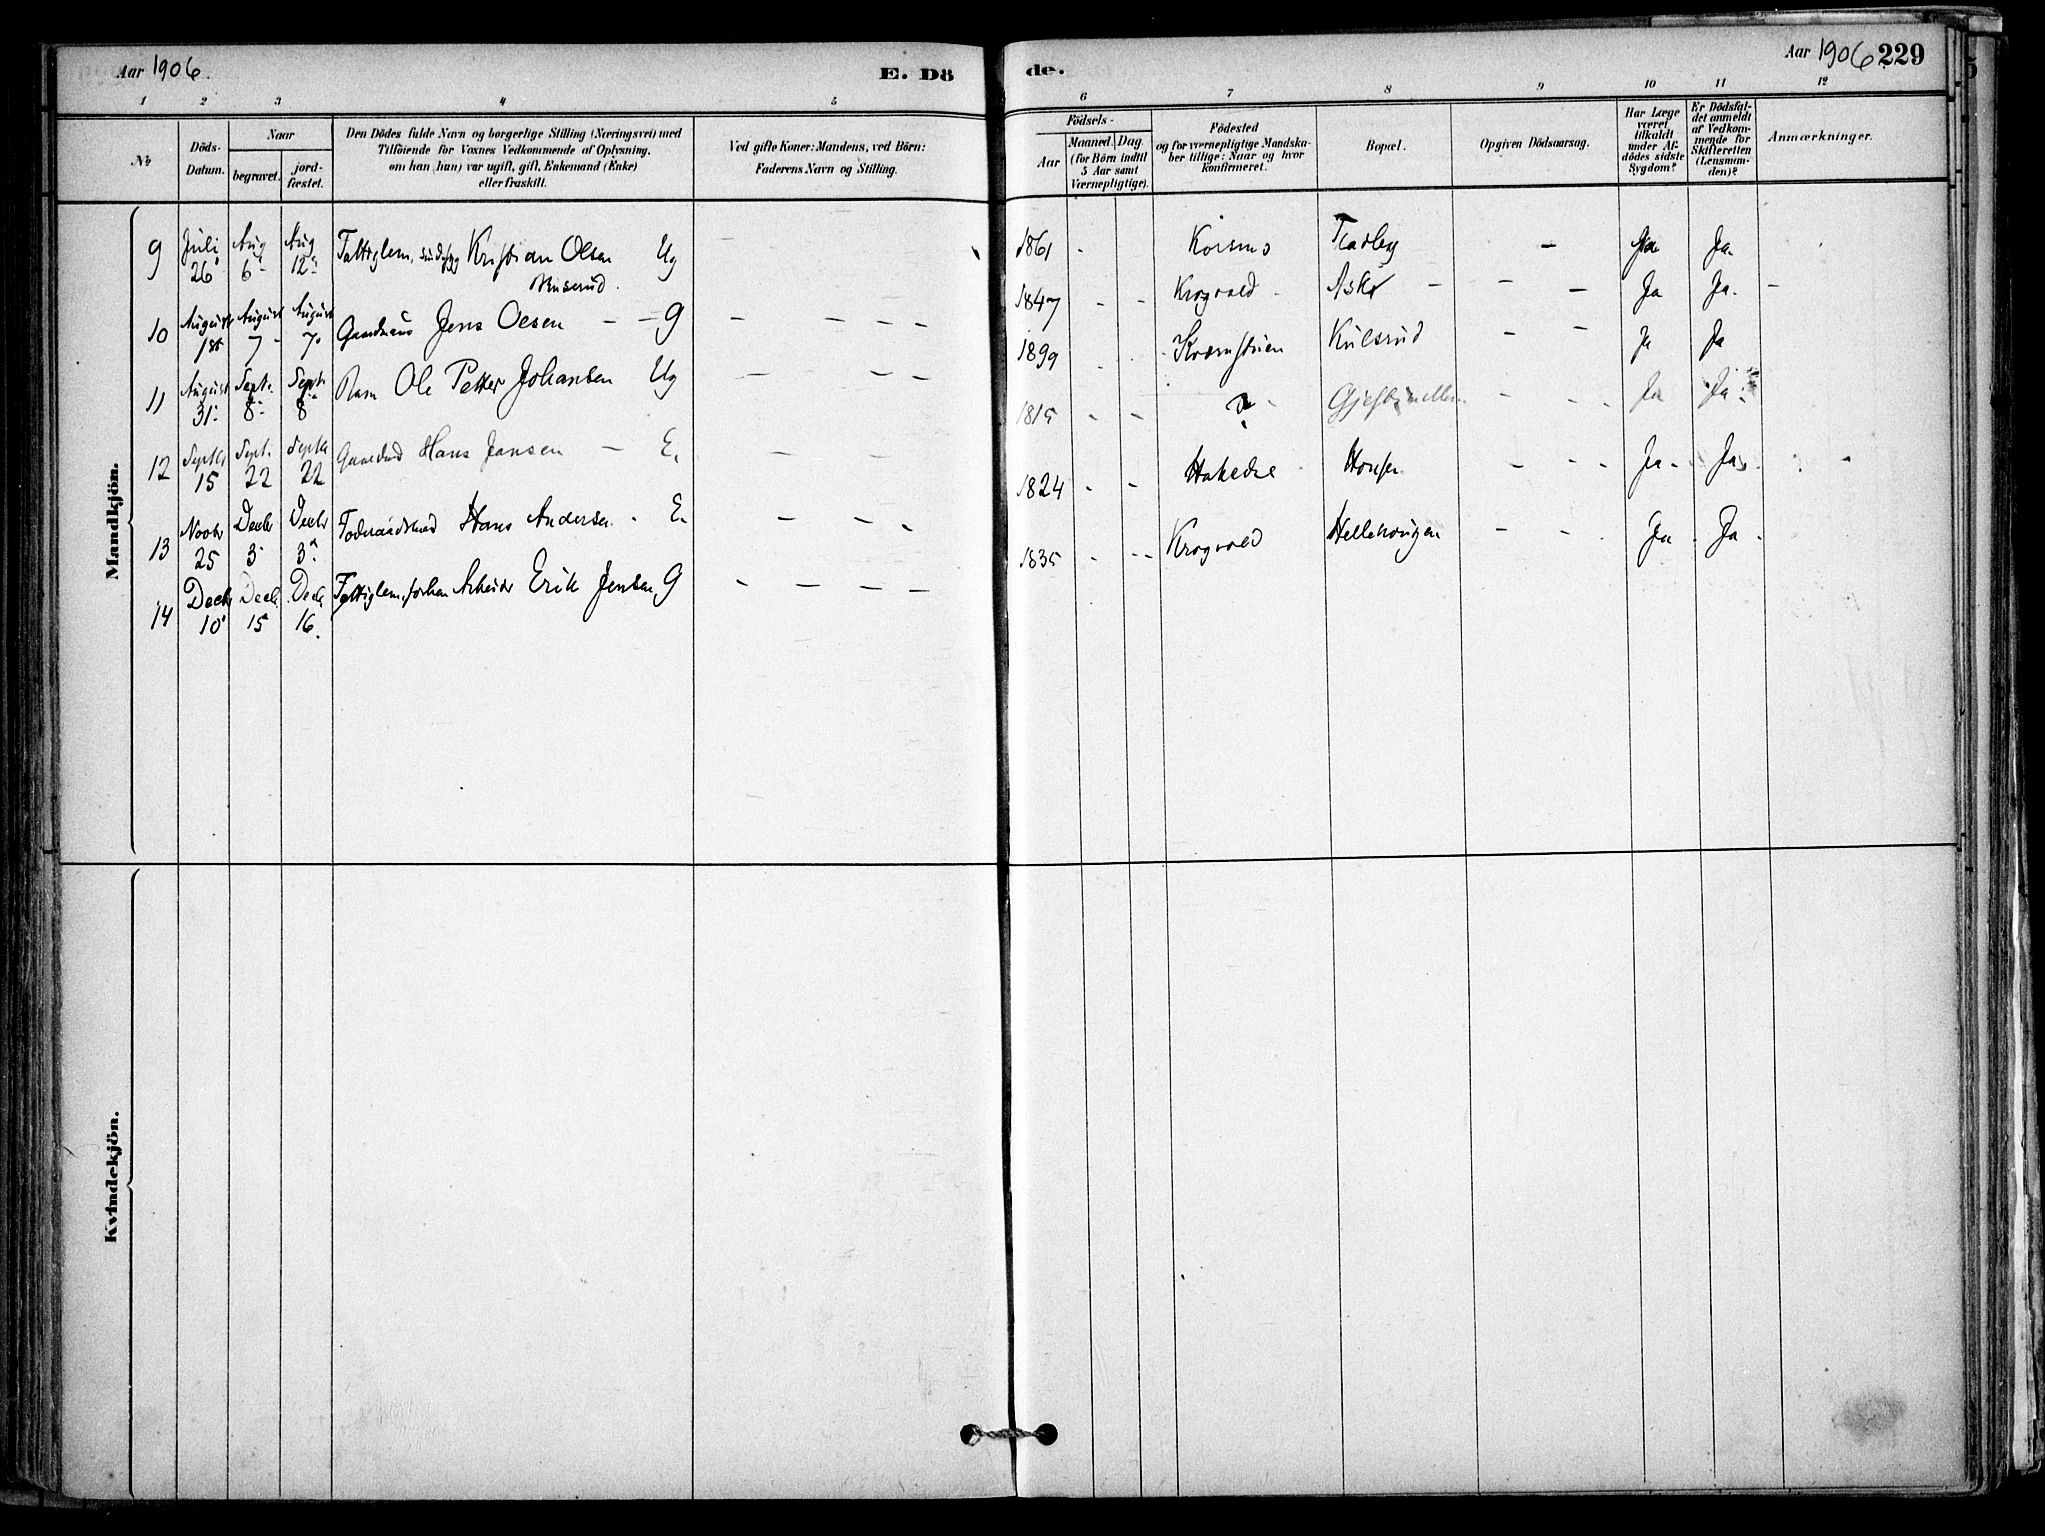 Aar 1906.
E. Dö
de.
Aar 1906 229
1 2 3 4 5
6 7 8 9 10 11 12
No
Döds-
Datum.
Naar
begravet.
jord-
fæstet.
Den Dödes fulde Navn og borgerlige Stilling (Næringsvei) med
Tilföiende for Voxnes Vedkommende af Oplysning,
om han (hun) var ugift, gift, Enkemand (Enke)
eller fraskilt.
Ved gifte Koner: Mandens, ved Börn:
Faderens Navn og Stilling.
Födsels-
Aar
Maaned. Dag.
(for Börn indtil
5 Aar samt
Værnepligtige).
Födested
og for værnepligtige Mandska-
ber tillige: Naar og hvor
konfirmeret.
Bopæl.
Opgiven Dödsaarsag.
Har Læge
været
tilkaldt
under Af-
dödes sidste
Sygdom?
Er Dödsfal-
det anmeldt
af Vedkom-
mende for
Skifteretten
(Lensman-
den)?
Anmærkninger.
Mandkjön.
9 Juli 26 Aug 6 Aug 12 Fattiglem, Kristian Olsen Ug
Buserud.
1861 - Korsmo - Ja Ja.
10 August 1st August 7 August 7. Gaardmand Jens Olsen - - G - - - -
1847 - - Krogvold - Askr - - - Ja Ja. -
11 August 31. Sept. 8 Sept. 8 Barn Ole Petter Johansen Ug - - -
1899 Kulsrud - - Ja Ja
12 Septb 15 Sept. 22 Septb 22 Hans Jansen - E. - - -
1815 - - ? - - - - Ja Ja.
13 Novbr 25 Decbr 3 Decbr 3. Foderaadsmand Hans Andersen - E. - - -
1824 - - - - - Ja. Ja.
14 Decbr 10 Decbr 15 Decbr 16. Fattiglem, forhen Arbeider Erik Jensen, G - - - -
1835 - - - Krogvold Hellehaugen - - Ja. Ja.
Kvindekjön.